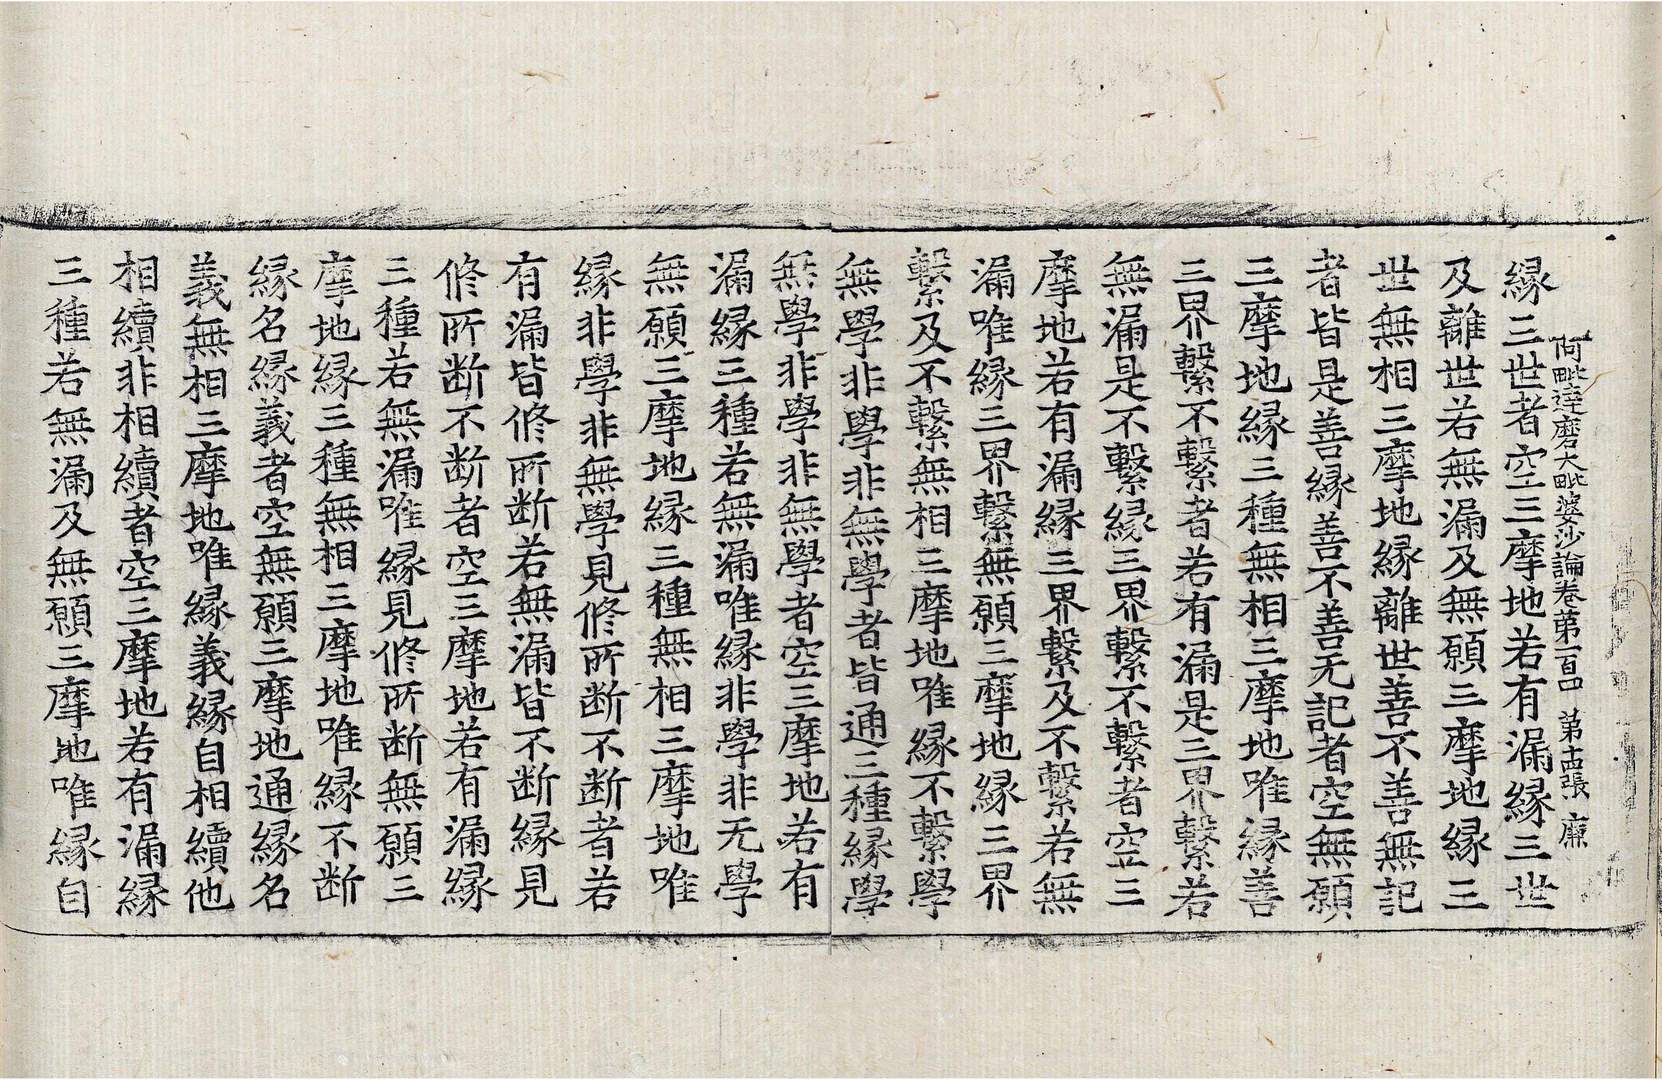 阿毗達磨大毗婆沙論卷第一百四　第十四張　廉
縁三世者空三摩地若有漏縁三世
及離世若無漏及無願三摩地縁三
世無相三摩地縁離世善不善無記
者皆是善縁善不善无記者空無願
三摩地縁三種無相三摩地唯縁善
三界繫不繫者若有漏是三界繫若
無漏是不繫縁三界繫不繫者空三
摩地若有漏縁三界繫及不繫若無
漏唯縁三界繫無願三摩地縁三界
繫及不繫無相三摩地唯縁不繫學
無學非學非無學者皆通三種縁學
無學非學非無學者空三摩地若有
漏縁三種若無漏唯縁非學非无學
無願三摩地縁三種無相三摩地唯
縁非學非無學見修所断不断者若
有漏皆修所断若無漏皆不断縁見
修所断不断者空三摩地若有漏縁
三種若無漏唯縁見修所断無願三
摩地縁三種無相三摩地唯縁不断
縁名縁義者空無願三摩地通縁名
義無相三摩地唯縁義縁自相續他
相續非相續者空三摩地若有漏縁
三種若無漏及無願三摩地唯縁自